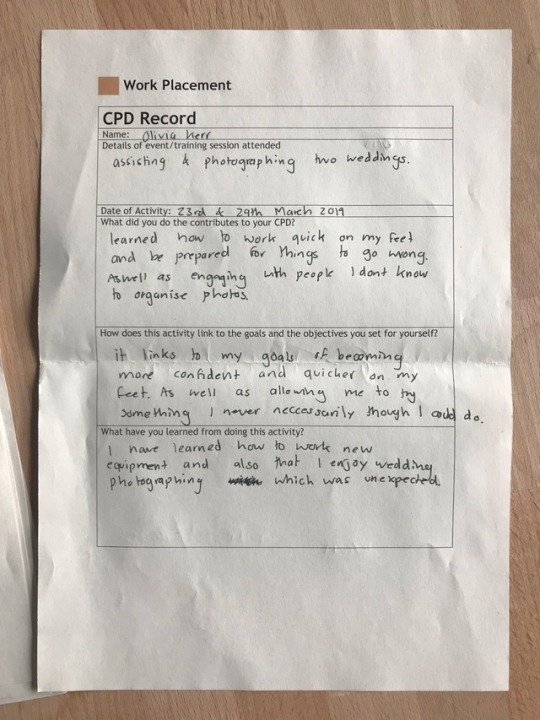 Work Placement
CPD Record
Name: Olivia Kerr
Details of event/training session attended
assisting & photographing two weddings.
Date of Activity: 23rd & 29th March 2019
What did you do the contributes to your CPD?
learned how to work quick on my feet
and be prepared for things to go wrong.
Aswell as engaging with people I dont know
to organise photos.
How does this activity link to the goals and the objectives you set for yourself?
it links to my goals of becoming
more confident and quicker on my
feet. As well as allowing me to try
something I never neccessarily though I could do.
What have you learned from doing this activity?
I have learned how to work new
equipment and also that I enjoy wedding
photographing which was unexpected.